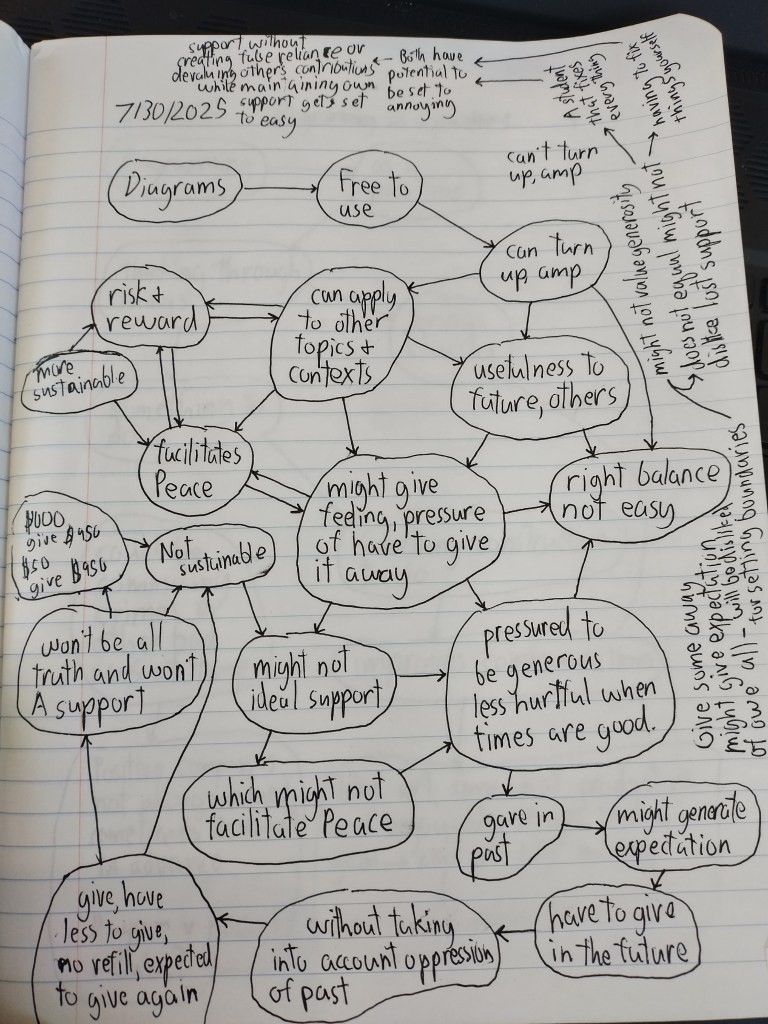 support without
creating false reliance or
devaluing others contributions
while maintaining own
support gets set
to easy
7/30/2025
← Both have
potential to
be set to
annoying
A student
that fixes
everything
having to fix
things yourself
can't turn
up, amp
might not value generosity
does not equal might not
dislike lots support
Diagrams
Free to
use
can turn
up, amp
risk +
reward
can apply
to other
topics +
contexts
more
sustainable
usefulness to
future, others
facilitates
Peace
might give
feeling, pressure
of have to give
it away
right balance
not easy
$1000
give $950
$50
give $950
Not
sustainable
Give some away
might give expectation
of owe all - will be disliked
for setting boundaries
won't be all
truth and won't
A support
might not
ideal support
pressured to
be generous
less hurtful when
times are good.
which might not
facilitate Peace
gave in
past
might generate
expectation
give, have
less to give,
no refill, expected
to give again
without taking
into account oppression
of past
have to give
in the future